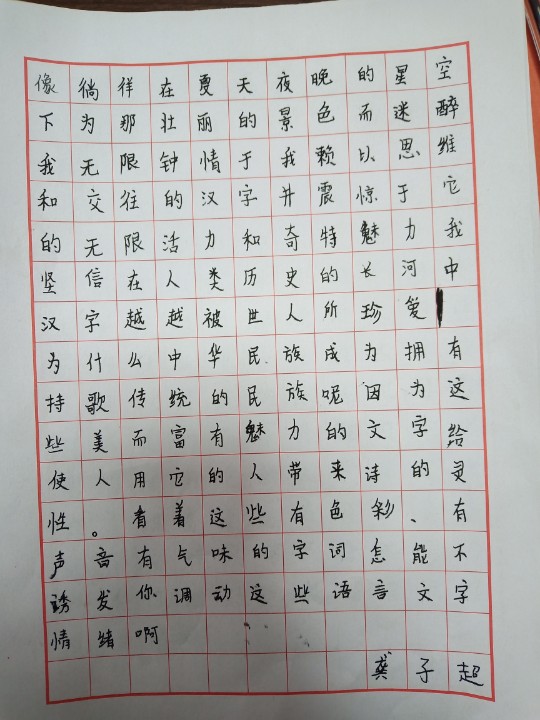 像徜徉在夏天夜晚的星空
下为那壮丽的景色而迷醉
我无限钟情于我赖以思维
和交往的汉字并震惊于它
的无限活力和奇特魅力我
坚信在人类历史的长河中
汉字越越被世人所珍爱
为什么中华民族成为拥有
持歌传统的民族呢因为这
些美而富有魅力的文字给
使人用它的人带来诗的灵
性。看着这些有色彩、有
声音有气味的字词怎能不
诱发你调动这些语言文字
情绪啊
龚子超